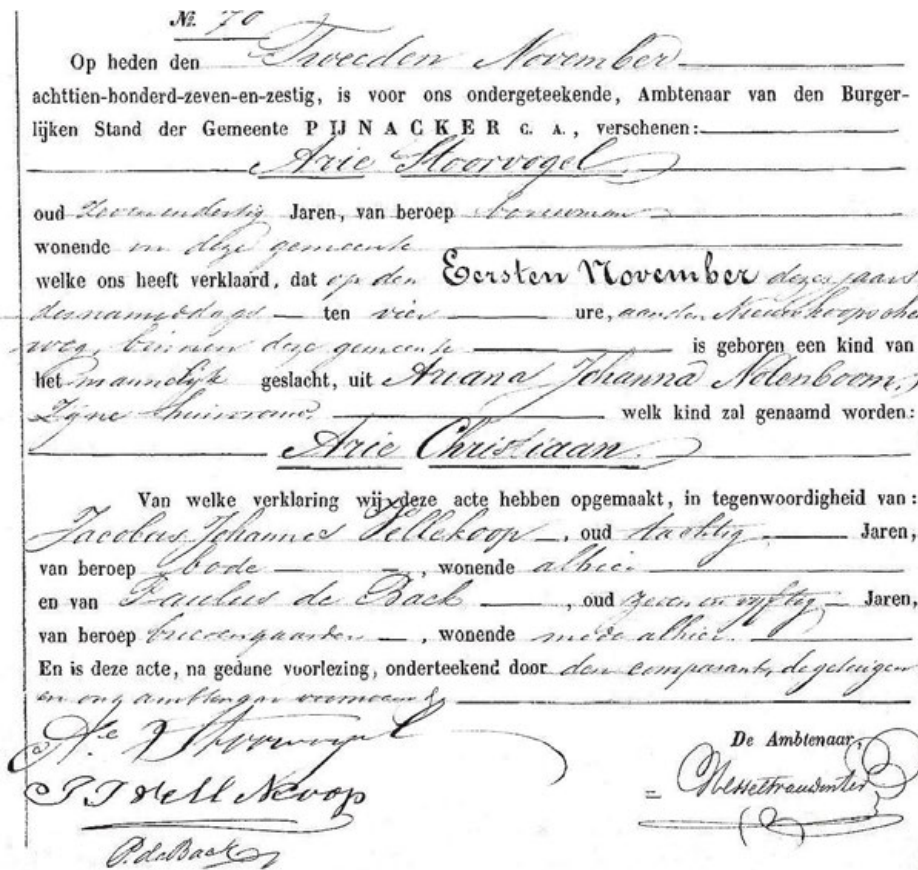 No. 70
Op heden den Tweeden November
achttien-honderd-zeven-en-zestig, is voor ons ondergeteekende, Ambtenaar van den Burger-
lijken Stand der Gemeente PIJNACKER C. A., verschenen:
Arie Stoorvogel
oud zevenendertig Jaren, van beroep bouwman
wonende in deze gemeente
welke ons heeft verklaard, dat op den Eersten November dezes jaars
des namiddags ten vier ure, aan den Nieuwkoopsche
weg, binnen deze gemeente is geboren een kind van
het mannelijk geslacht, uit Ariana Johanna Nolenboom,
Zijne huisvrouw. welk kind zal genaamd worden:
Arie Christiaan.
Van welke verklaring wij deze acte hebben opgemaakt, in tegenwoordigheid van:
Jacobus Johannes Vellekoop, oud tachtig Jaren,
van beroep bode, wonende alhier
en van Paulus de Back, oud zeven en vyftig Jaren,
van beroep, wonende mede alhier.
En is deze acte, na gedane voorlezing, onderteekend door den comparant, de getuigen
en ons ambtenaar voornoemd
Ae Stoorvogel
De Ambtenaar,
J J Vellekoop
P. de Back